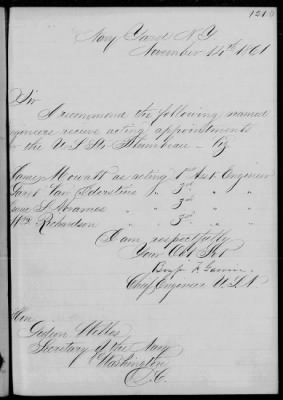 121
Navy Yard N.Y
November 14th 1861
Sir
I recommend the following named
ngineers receive acting appointments
for the U S Str Flambeau - Viz
James Mowatt as acting 1st Asst Engineer
Garrt Van " 3rd " "
Isaac S. Abrames " 3rd " "
Wm Richardson " 3rd " "
I am respectfully
Your Obt Svt
Benj F Garvin
Chief Engineer U.S.N
Hon
Gideon Welles
Secretary of the Navy
Washington
D.C.